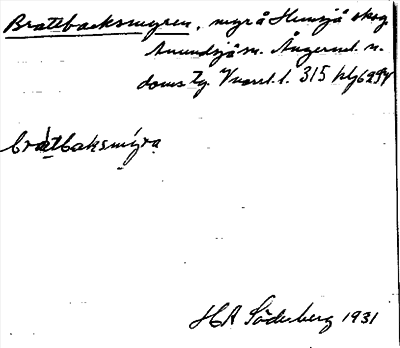 Brattbacksmyren, myr å Hemsjö skog
Anundsjö sn. Ångerml. n.
doms tg. Västl. l. 315 blg 6294
bràtbaksmýra
HR Söderberg 1931